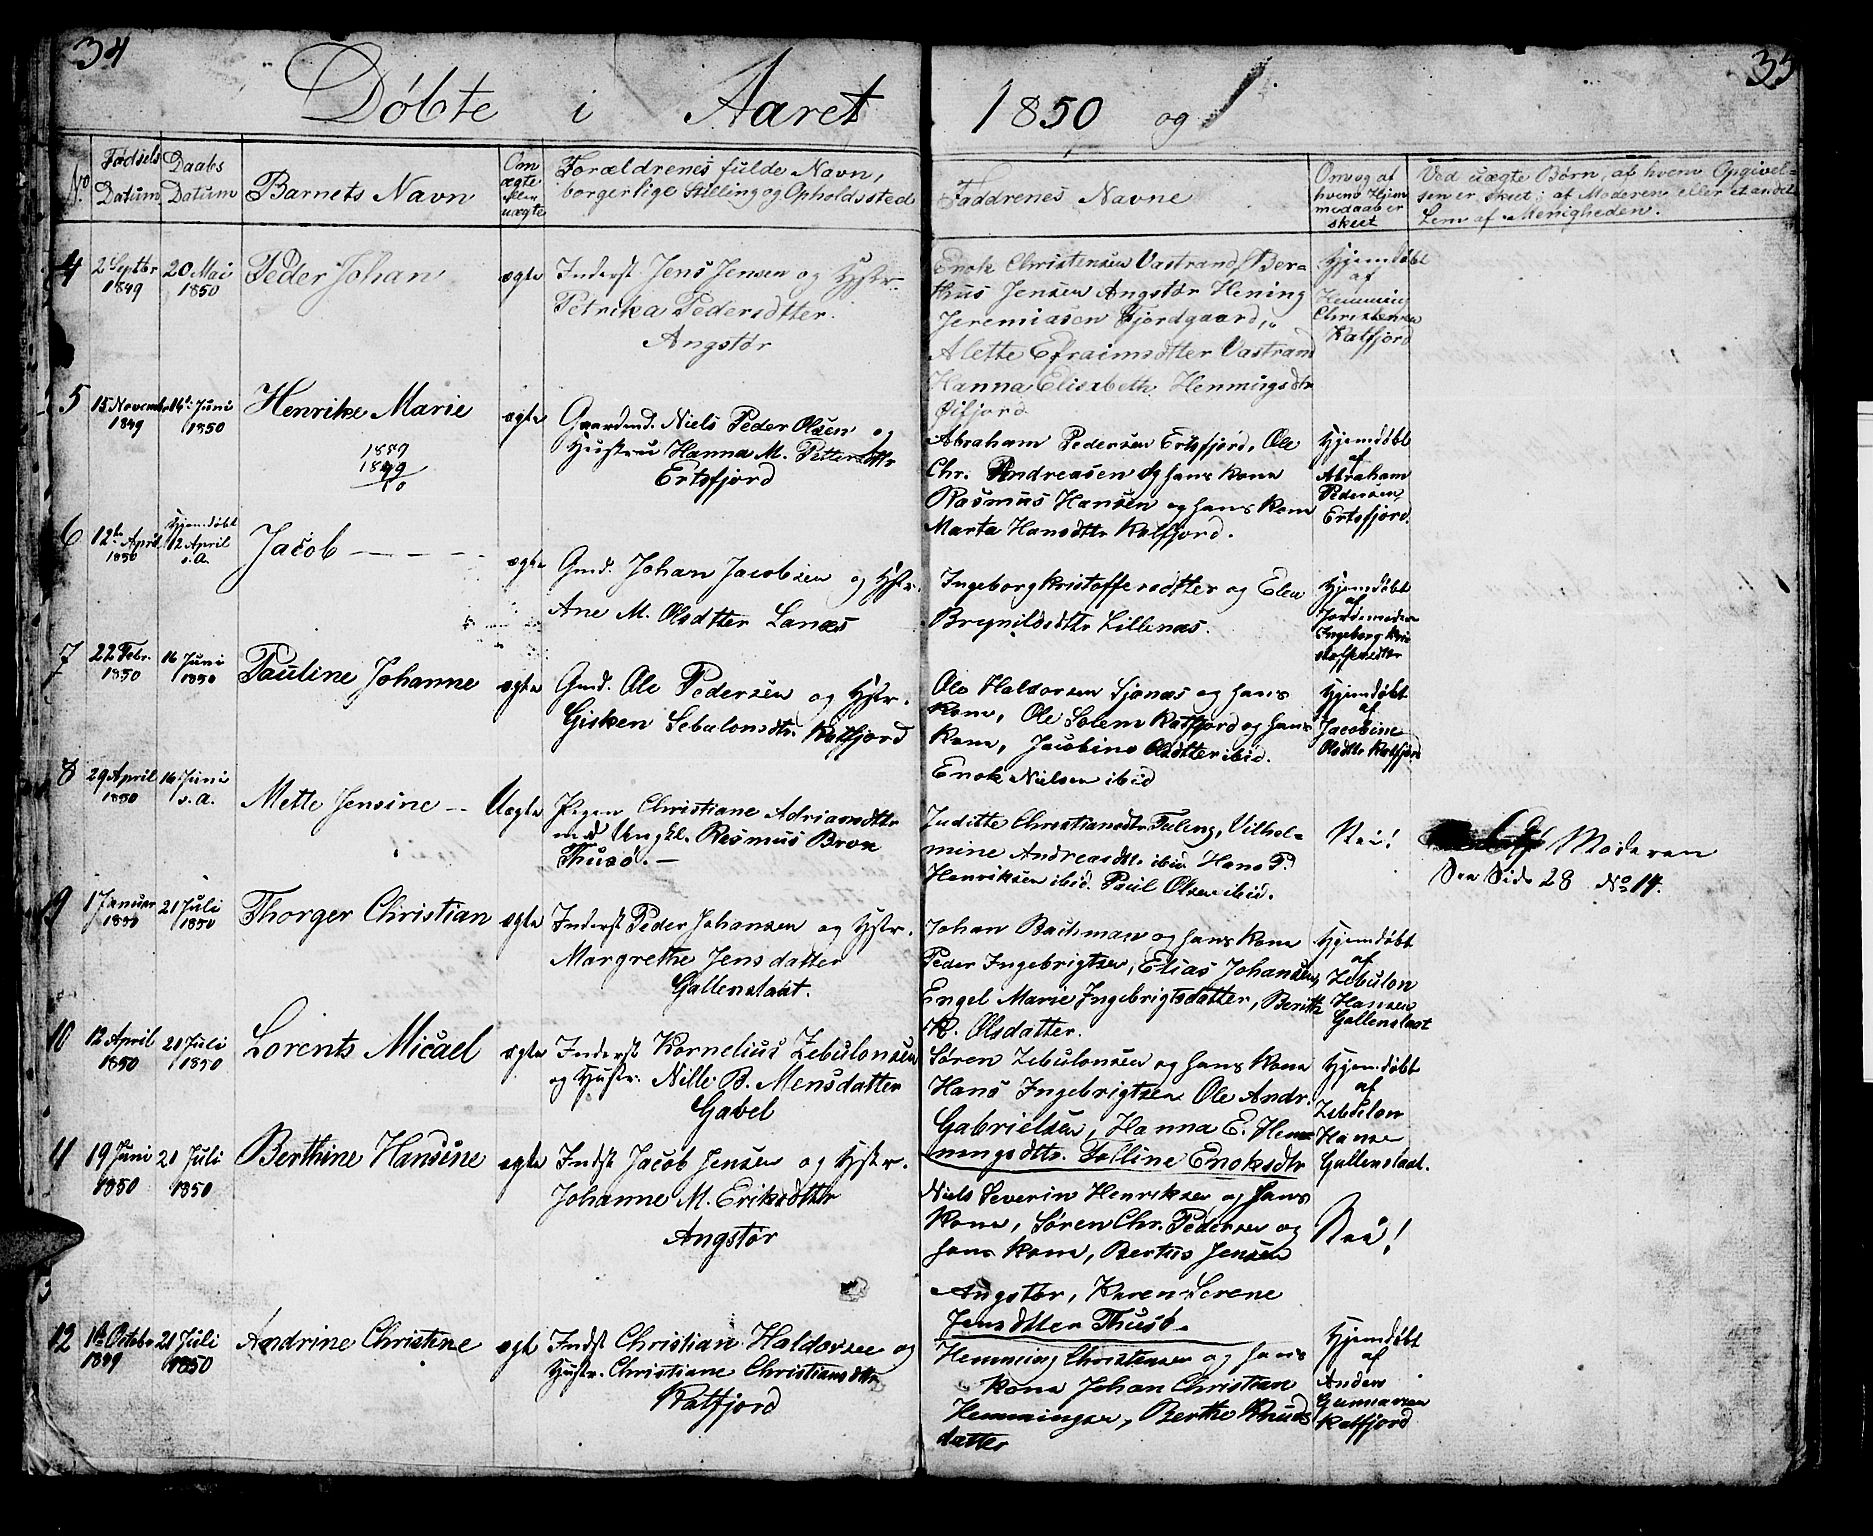 34
35
Døbte i Aaret 1850 og 1
No.
Fødsels Datum
Daabs Datum
Barnets Navn
Om ægte eller uægte
Forældrenes fulde Navn,
borgerlige Stilling og Opholdssted
Faddrenes Navne
Om og af
hvem Hjem
medaab er
skeet
Ved uægte Børn, af hvem Opgivel-
sen er skeet; af Moderen eller et andet
Lem af Menigheden.
4
2 Septbr
1849
20 Mai
1850
Peder Johan
ægte
Inderst Jens Jensen og Hustr.
Petrika Pedersdtter.
Angstør
Enok Christensen Vastrand, Ber=
thus Jensen Angstør Hening
Jeremiasen Fjordgaard,
Alette Efraimsdtter Vastrand
Hanna Elisabeth Henningsdtr
Øifjord
Hjemdøbt
af
Hemming
Christensen
Katfjord
5
15 November
1849
16 Juni
1850
Henrike Marie
1889
1849
40
ægte
Gaardmd. Niels Peder Olsen og
Hustru Hanna M. Pettersdttr
Ertsfjord
Abraham Pedersen Ertsfjord, Ole
Chr. Andreasen og hans kone
Rasmus Hansen og hans kone
Marta Hansdttr Katfjord.
Hjemdøbt
af
Abraham
Pedersen,
Ertsfjord.
6
12te April
1850
Hjemdøbt
12 April
s.A.
Jacob - - - -
ægte
Gmd. Johan Jacobsen og Hstr.
Ane M. Olsdtter Lanæs
Ingeborg Kristoffersdtter og Elen
Brynildsdttr Lillenæs.
Hjemdøbt
af
Jordemoder
Ingeborg Kri
stoffersdttr
7
22 Febr.
1850
16 Juni
1850
Pauline Johanne
ægte
Gmd. Ole Pedersen og Hstr.
Gisken Sebulonsdtr Katfjord
Ole Haldorsen Sjønæs og hans
kone, Ole Solem Katfjord og hans
kone, Jacobine Olsdtter ibid.
Enok Nielsen ibid
Hjemdøbt
af
Jacobine
Olsdttr Katfjord
8
29 April
1850
16 Juni
s.A.
Mette Jensine --
Uægte
Pigen Christiane Adriansdttr
med Ungkl. Rasmus Brox
Thusø. -
Juditte Christiansdtr Tuleng, Vilhel=
mine Andreasdttr ibid Hans P.
Henriksen ibid. Paul Olsen ibid.
Nei!
af Moderen
See Side 28 No 14.
9
1 Januar
1850
21 Juli
1850
Thorger Christian
ægte
Inderst Peder Johansen og Hstr.
Margrethe Jensdatter
Gallenstaat.
Johan Backman og hans kone
Peder Ingebrigtsen, Elias Johansen,
Engel Marie Ingebrigtsdatter, Berith
K. Olsdatter.
Hjemdøbt
af
Zebulon
Hansen
Gallenstaat
10
12 April
1850
21 Juli
1850
Lorents Micael
ægte
Inderst Kornelius Zebulonsen
og Hustr. Nille B. Mensdatter
Gavel
Søren Zebulonsen og hans kone
Hans Ingebrigtsen Ole Andr.
Gabrielsen, Hanna E. Hem=
ningsdttr. Folline Enoksdtr
Hjemdøbt
af
Zebulon
Hanse
Gallenstaat.
11
19 Juni
1850
21 Juli
1850
Berthine Hansine
ægte
Indst Jacob Jensen og Hstr.
Johanne M. Eriksdttr
Angstør
Niels Severin Henriksen og hans
kone, Søren Chr. Pedersen og
hans kone, Bertus Jensen
Angstør, Karen Serene
Jensdtter Thusø.
Nei!
12
1te Octobr
1849
21 Juli
1850
Andrine Christine
ægt
Indst Christian Haldorsen og
Hustr. Christiane Christiansdttr
Katfjord
Hemming Christensen og hans
kone Johan Christian
Hemmingsen, Berthe Knuds
datter
Hjemdøbt
af
Anders
Gunnarsen
Katfjord